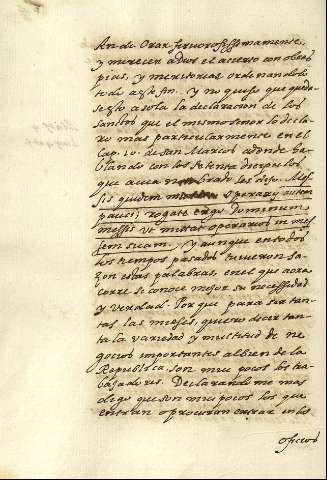 An de Orar fervorosissimamente,
y merecer a dios el acierto con obras
pias, y meritorias ordenandolo
todo a este fin. y no quiso que queda
se esto a sola la declaracion de los
santos que el mismo señor lo decla
ro mas particularmente en el
Cap. 10. de san Marcos adonde ha
blando con los setenta discipulos
que avia nombrado les dijo. Mes
sis quidem multa operarij autem
pauci; rogate ergo Dominum
messis ut mittat operarios in mes
sem suam, y aunque en todos
los tiempos pasados tuvieron sa
zon estas palabras, en el que aora
corre se conoce mejor su necessidad
y verdad. Porque para ser tan
tas las mieses, quiero decir tan
ta la variedad y multitud de ne
gocios importantes al bien de la
Republica, son mui pocos los tra
bajadores. Declarandome mas
digo que son mui pocos los que
entran o procuran entrar en los
oficios